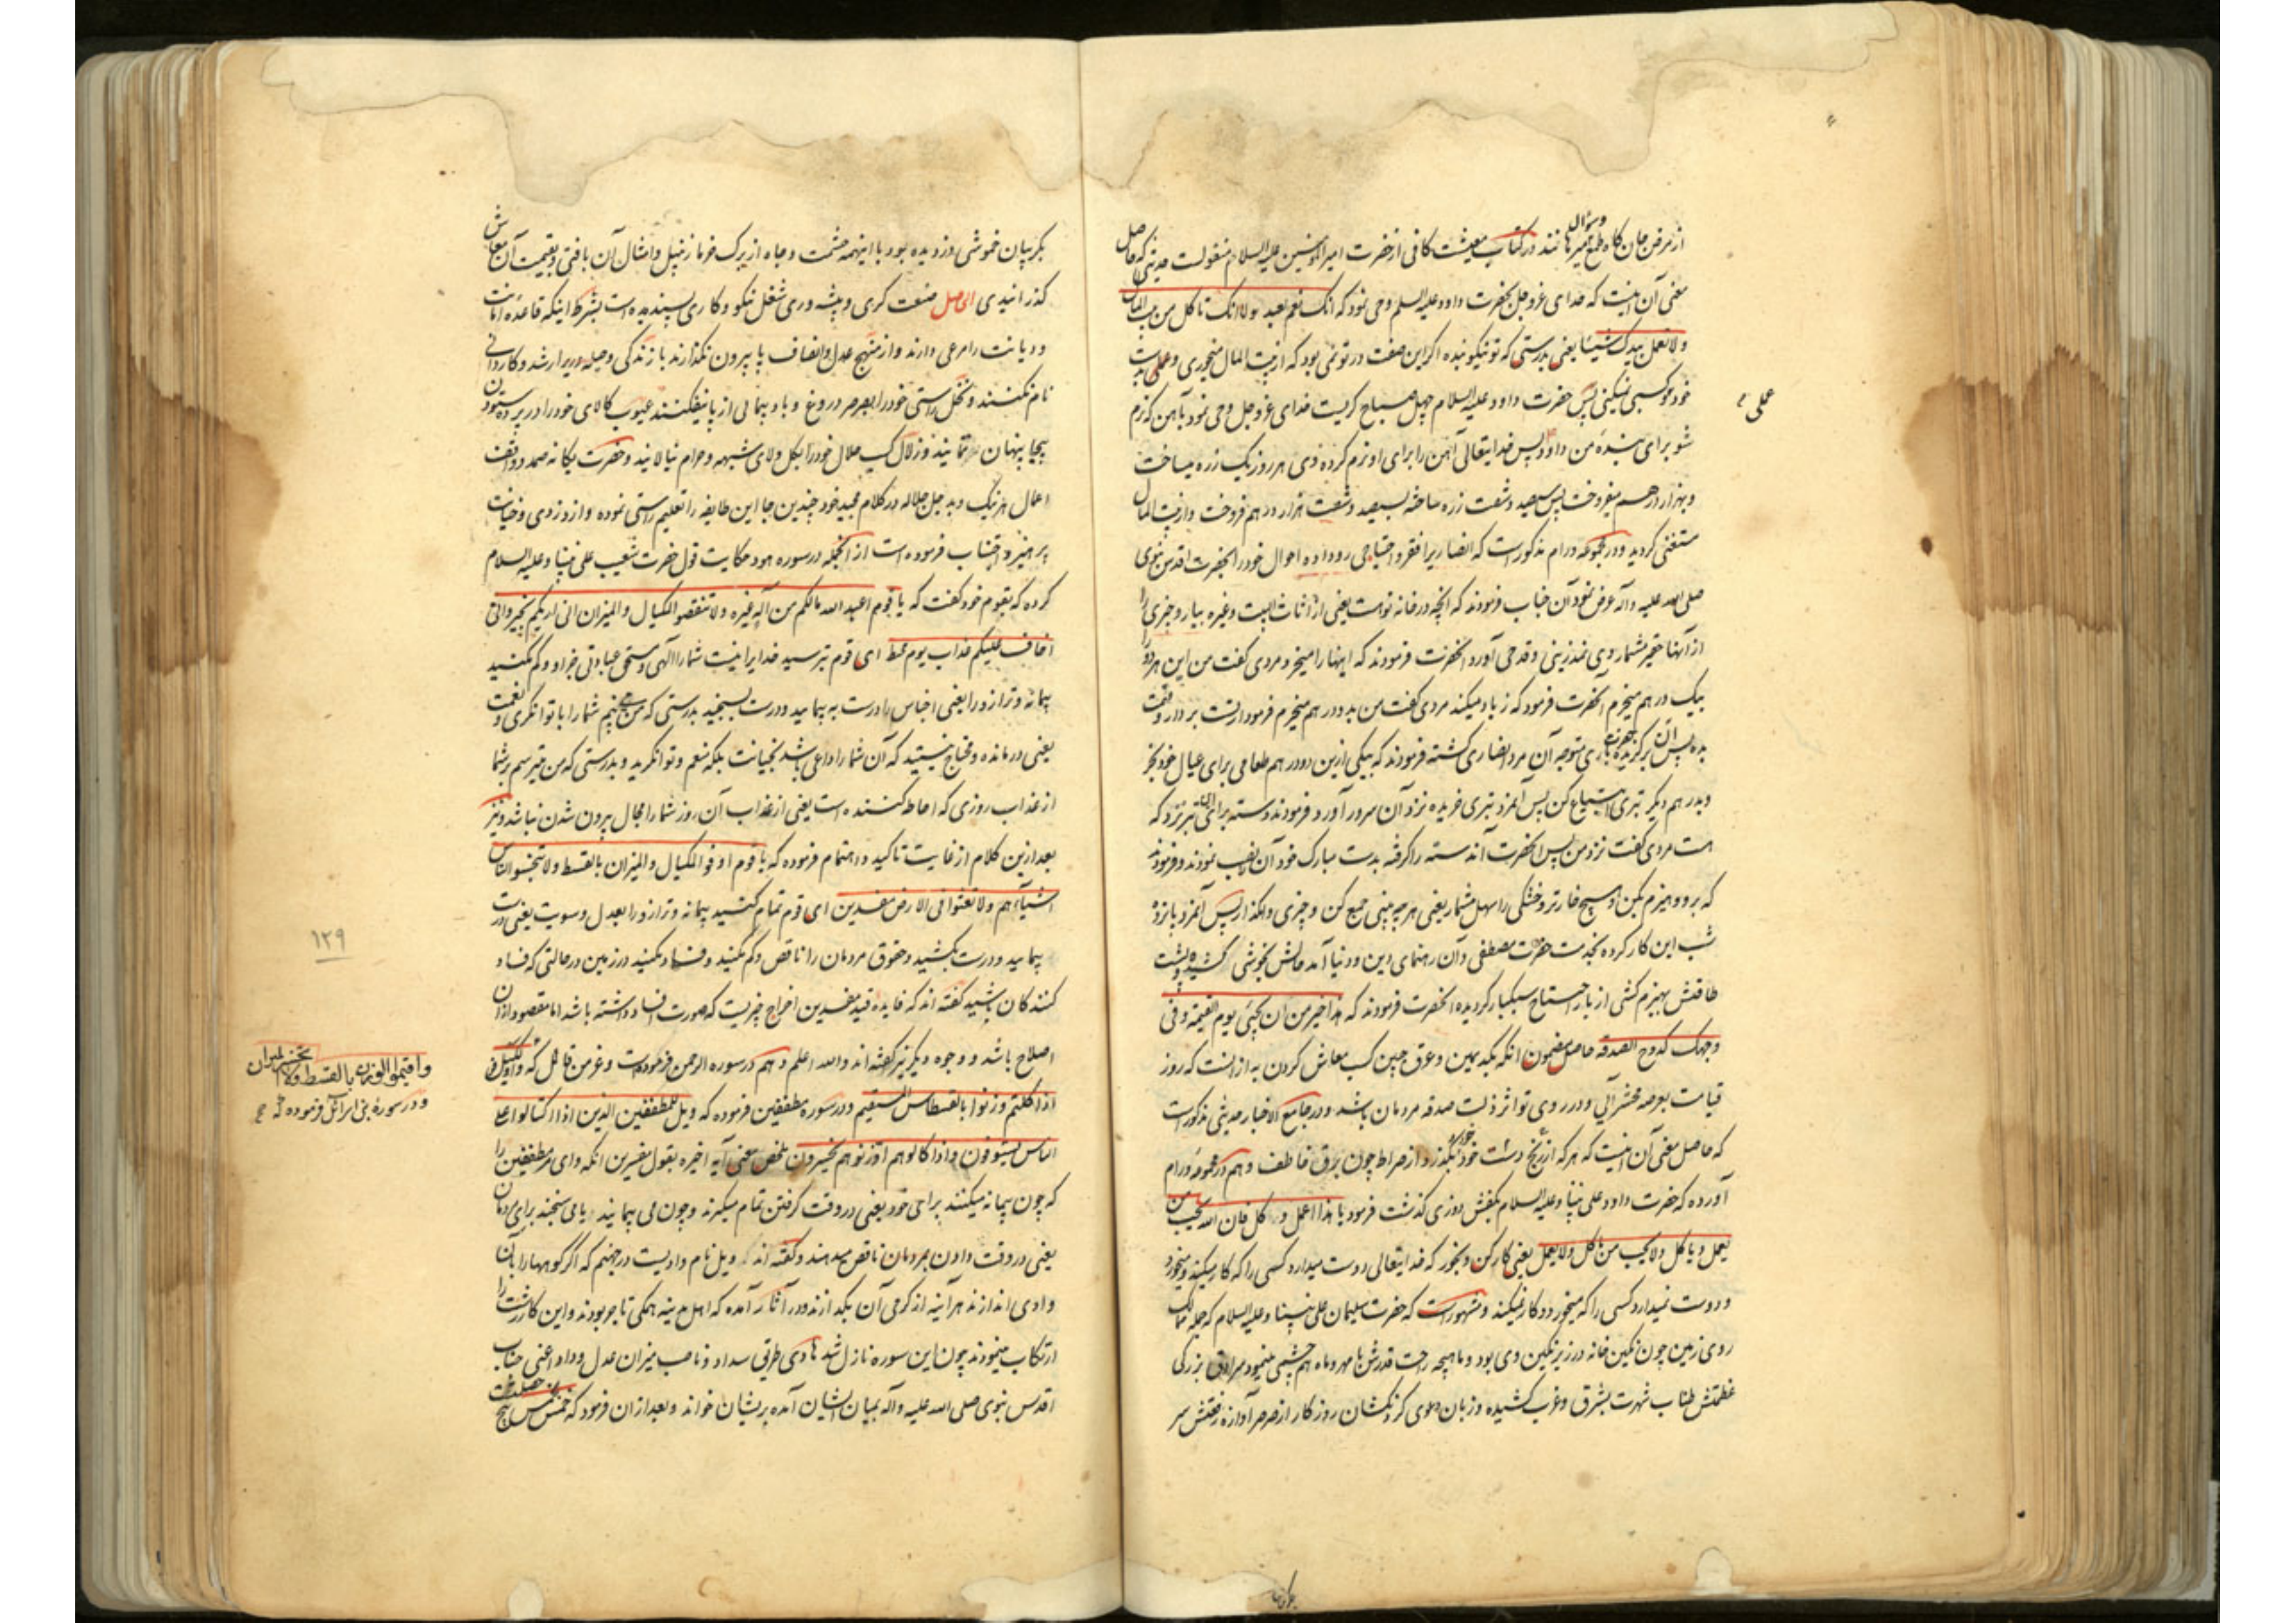 از مرفق جان کاه طمع و سؤال نند در کتاب معیشت کافی از حضرت امیرالمؤمنین علیه السلام منقولست حدیثی که حاصل
معنی آن اینست که خدای عز و جل بحضرت داود علیه السلم وحی نمود که انک نعم العبد لولا انک تاکل من بیت المال
ولا تعمل بیدک شیئا یعنی بدرستی که تو نیکو بنده اگر این صفت در تو نمی بود که از بیت المال میخوری و عملی بدست
خود و کسبی نمیکنی پس حضرت داود علیه السلام چهل صباح گریست خدای عز و جل وحی نمود بآهن که نرم
عملی
شو برای بندهٔ من داود پس خدایتعالی آهن را برای او نرم کرده وی هر روز یک زره میساخت
و بهزار درهم میفروخت پس سیصد و شصت زره ساخته بسیصد و شصت هزار درهم فروخت و از بیت المال
مستغنی گردید و در مجموعه ورام مذکورست که انصاریرا فقر و احتیاجی روداده احوال خود را بحضرت اقدس نبوی
صلی الله علیه و آله عرض نمود آن جناب فرمودند که آنچه در خانه توست یعنی از اثاث البیت و غیره بیار و چیزی را
از آنها حقیر مشمار وی نمدزینی و قدحی آورد آنحضرت فرمودند که اینها را میخرد مردی گفت من این هر دو را
بیک درهم میخرم آنحضرت فرمود که زیاد میکند مردی گفت من بدو درهم میخرم فرمود از تست بردار و قیمت
بده پس آن برگزیده متوجه آن مرد انصاری گشته فرمودند که بیکی ازین دو درهم طعامی برای عیال خود بخر
و بدرهم دیگر تبری ابتیاع کن پس آنمرد تبری خریده نزد آن سرور آورد فرمودند دسته برای این تبر نزد که
هست مردی گفت نزد من پس آنحضرت آندسته را گرفته بدست مبارک خود آن نصب نمودند و فرمودند
که برو و هیزم بکن و هیچ خار تر و خشکی را سهل مشمار یعنی هر چه بینی جمع کن و چیزی وامگذار پس آنمرد پانزده
شب این کار کرده بخدمت حضرت مصطفی و آن رهنمای دین و دنیا آمد حالش بخوشی کشیده و پشت
طاقتش بهیزم کشی از بار احتیاج سبکبار گردیده آنحضرت فرمودند که هذا خیر من ان یجیئ یوم القیمه و فی
وجهک کدوح الصدقه حاصل مضمون آنکه بکد یمین و عرق جبین کسب معاش کردن به از انست که روز
قیامت بعرصه محشر آئی و در روی تو اثر ذلت صدقه مردمان باشد و در جامع الاخبار حدیثی مذکورست
که حاصل معنی آن اینست که هر که از رنج دست خود خورد بگذرد از صراط چون برق خاطف و هم در مجموعه ورام
آورده که حضرت داود علی نبینا و علیه السلام بکفش دوزی گذشت فرمود یا هذا اعمل و کل فان الله یحب من
یعمل و یاکل ولا یحب من یاکل ولا یعمل یعنی کار کن و بخور که خدایتعالی دوست میدارد کسی را که کار میکند و میخورد
و دوست نمیدارد کسی را که میخورد و کار نمیکند و مشهورست که حضرت سلیمان علی نبینا و علیه السلام که جمله ممالک
روی زمین چون نگین خانه در زیر نگین وی بود و ماهیچه رایت قدرش با مهر و ماه هم چشمی مینمود سرادق بزرگی
عظمتش طناب شهرت بشرق و غرب کشیده و زبان دعوی گردنکشان روزگار از صرصر آوازه رفعتش سر
بگریبان خموشی دزدیده بود با اینهمه حشمت و جاه از برگ خرما زنبیل و امثال آن بافتی و بقیمت آن معاش
گذرانیدی الحاصل صنعت گری و پیشه وری شغل نیکو و کاری پسندیده است بشرط اینکه قاعدهٔ امانت
و دیانت را مرعی دارند و از منهج عدل و انصاف پا بیرون نگذارند بازندگی و حیله وریرا رشد و کاردانی
نام نکنند و نخل راستی خود را بصرصر دروغ و بادپیمائی از پا نیفکنند عیوب کالای خود را در پردهٔ سیون
بیجا پنهان ننمایند و زلال کسب حلال خود را بگل و لای شبهه و حرام نیالایند و حضرت یگانه صمد و واقف
اعمال هر نیک و بد جل جلاله در کلام مجید خود چندین جا این طایفه را تعلیم راستی نموده و از دزدی و خیانت
پرهیز و اجتناب فرموده است از آنجمله در سوره هود حکایت قول حضرت شعیب علی نبینا و علیه السلام
کرده که بقوم خود گفت که یا قوم اعبدوا الله مالکم من اله غیره ولا تنقصوا المکیال والمیزان انی اریکم بخیر وانی
اخاف علیکم عذاب یوم محیط ای قوم بپرسید خدایرا نیست شما را الهی و مستحق عبادتی جز او و کم مکنید
پیمانه و ترازو را یعنی اجناس را درست به پیمایید و درست بسنجید بدرستی که من می بینم شما را با توانگری و نعمت
یعنی درمانده و محتاج نیستید که آن شما را داعی باشد بخیانت بلکه منعم و توانگرید و بدرستی که من میترسم بر شما
از عذاب روزی که احاطه کننده است یعنی از عذاب آن روز شما را مجال بیرون شدن نباشد و نیز
بعد ازین کلام از غایت تاکید و اهتمام فرموده که یا قوم اوفوا المکیال والمیزان بالقسط ولا تبخسوا الناس
اشیآءهم ولا تعثوا فی الارض مفسدین ای قوم تمام کنید پیمانه و ترازو را بعدل و سویت یعنی درست
پیمایید و درست بکشید و حقوق مردمان را ناقص و کم مکنید و فساد مکنید در زمین در حالتی که فساد
۱۲۹
کنندگان باشید گفته اند که فایده قید مفسدین اخراج چیزیست که صورت فساد داشته باشد اما مقصود از آن
اصلاح باشد و وجوه دیگر نیز گفته اند والله اعلم و هم در سوره الرحمن فرموده است و عز من قائل که و اوفوا الکیل
واقیموا الوزن بالقسط ولا تخسروا المیزان
و در سورهٔ بنی اسرائیل فرموده که
اذا کلتم وزنوا بالقسطاس المستقیم و در سوره مطففین فرموده که ویل للمطففین الذین اذا اکتالوا علی
الناس یستوفون واذا کالوهم او وزنوهم یخسرون ملخص معنی آیه اخیره بقول مفسرین آنکه وای مر مطففین را
که چون پیمانه میکنند برای خود یعنی در وقت گرفتن تمام میگیرند و چون می پیمایند یا می سنجند برای مردمان
یعنی در وقت دادن بمردمان ناقص میدهند و گفته اند که ویل نام وادیست در جهنم که اگر کوهها را بآن
وادی اندازند هر آینه از گرمی آن بگدازند و در آثار آمده که اهل مدینه همگی تاجر بودند و این کار زشت را
ارتکاب مینمودند چون این سوره نازل شد هادی طریق سداد و ناصب میزان عدل و داد اعنی جناب
اقدس نبوی صلی الله علیه و آله بمیان ایشان آمده بریشان خواند و بعد ازان فرمود که خمس بخمس پنج خصلت